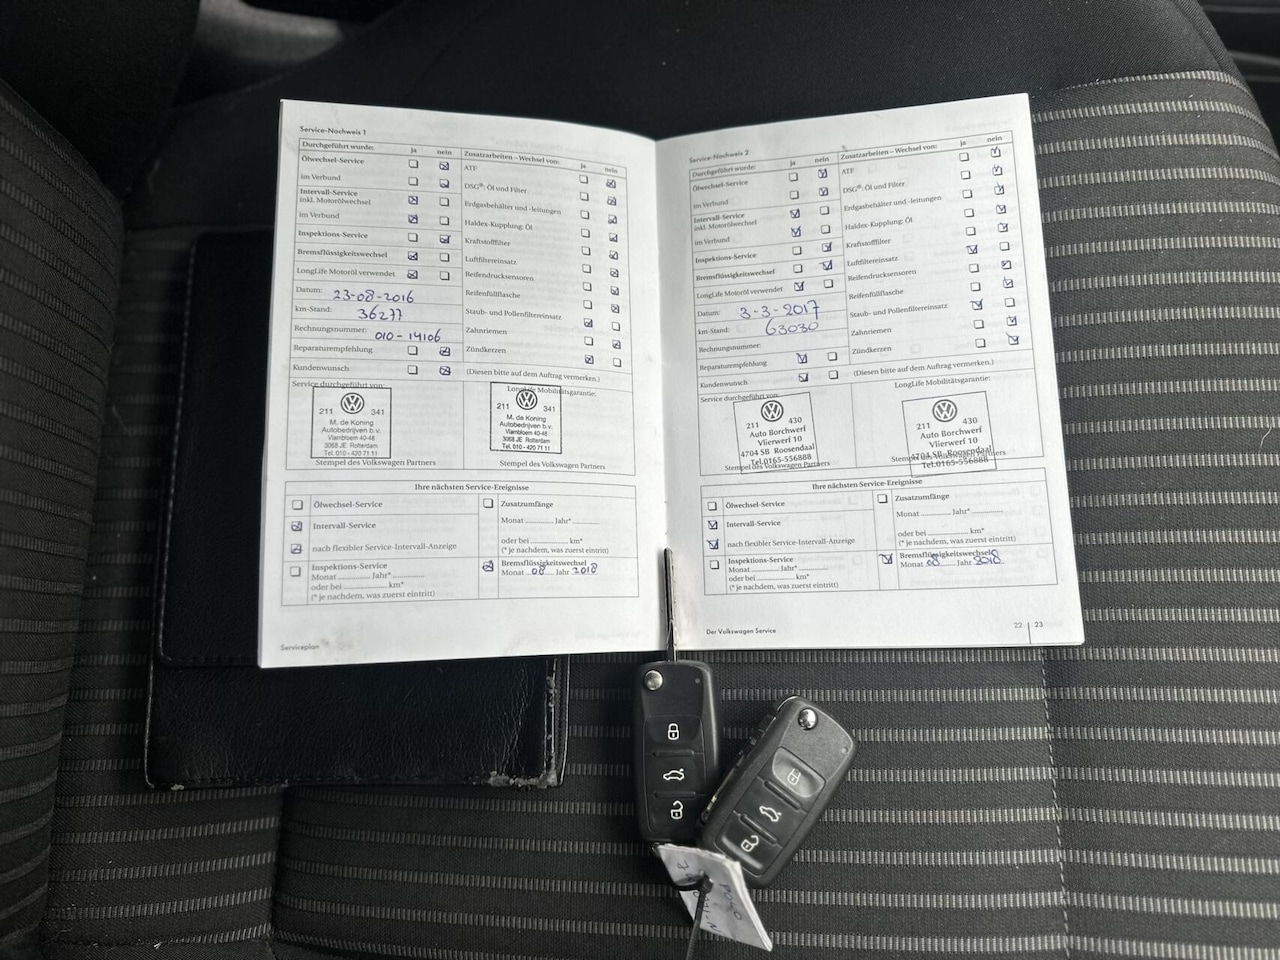 Service-Nachweis 1
Durchgeführt wurde: ja nein
Ölwechsel-Service
im Verbund
Intervall-Service
inkl. Motorölwechsel
im Verbund
Inspektions-Service
Bremsflüssigkeitswechsel
LongLife Motoröl verwendet
Datum: 23-08-2016
km-Stand: 36277
Rechnungsnummer: 010-14106
Reparaturempfehlung
Kundenwunsch
Zusatzarbeiten – Wechsel von: ja nein
ATF
DSG®: Öl und Filter
Erdgasbehälter und -leitungen
Haldex-Kupplung: Öl
Kraftstofffilter
Luftfiltereinsatz
Reifendrucksensoren
Reifenfüllflasche
Staub- und Pollenfiltereinsatz
Zahnriemen
Zündkerzen
(Diesen bitte auf dem Auftrag vermerken.)
Service durchgeführt von:
211 341
M. de Koning
Autobedrijven b.v.
Vlambloem 40-48
3068 JE Rotterdam
Tel. 010 - 420 71 11
Stempel des Volkswagen Partners
LongLife Mobilitätsgarantie:
211 341
M. de Koning
Autobedrijven b.v.
Vlambloem 40-48
3068 JE Rotterdam
Tel. 010 - 420 71 11
Stempel des Volkswagen Partners
Ihre nächsten Service-Ereignisse
Ölwechsel-Service
Intervall-Service
nach flexibler Service-Intervall-Anzeige
Inspektions-Service
Monat ............ Jahr* ............
oder bei ............ km*
(* je nachdem, was zuerst eintritt)
Zusatzumfänge
Monat ............ Jahr* ............
oder bei ............ km*
(* je nachdem, was zuerst eintritt)
Bremsflüssigkeitswechsel
Monat 08 Jahr 2018
Serviceplan
Service-Nachweis 2
Durchgeführt wurde: ja nein
Ölwechsel-Service
im Verbund
Intervall-Service
inkl. Motorölwechsel
im Verbund
Inspektions-Service
Bremsflüssigkeitswechsel
LongLife Motoröl verwendet
Datum: 3-3-2017
km-Stand: 63030
Rechnungsnummer:
Reparaturempfehlung
Kundenwunsch
Zusatzarbeiten – Wechsel von: ja nein
ATF
DSG®: Öl und Filter
Erdgasbehälter und -leitungen
Haldex-Kupplung: Öl
Kraftstofffilter
Luftfiltereinsatz
Reifendrucksensoren
Reifenfüllflasche
Staub- und Pollenfiltereinsatz
Zahnriemen
Zündkerzen
(Diesen bitte auf dem Auftrag vermerken.)
Service durchgeführt von:
211 430
Auto Borchwerf
Vlierwerf 10
4704 SB Roosendaal
Tel.0165-556888
Stempel des Volkswagen Partners
LongLife Mobilitätsgarantie:
211 430
Auto Borchwerf
Vlierwerf 10
4704 SB Roosendaal
Tel.0165-556888
Stempel des Volkswagen Partners
Ihre nächsten Service-Ereignisse
Ölwechsel-Service
Intervall-Service
nach flexibler Service-Intervall-Anzeige
Inspektions-Service
Monat ............ Jahr* ............
oder bei ............ km*
(* je nachdem, was zuerst eintritt)
Zusatzumfänge
Monat ............ Jahr* ............
oder bei ............ km*
(* je nachdem, was zuerst eintritt)
Bremsflüssigkeitswechsel
Monat 08 Jahr 2018
Der Volkswagen Service
22 | 23
POLO